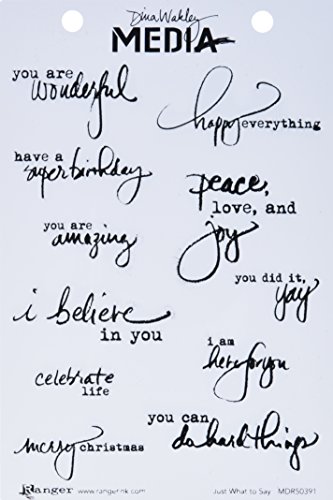 Dina Wakley
MEDIA
you are
wonderful
happy everything
have a
super birthday
peace,
love, and
joy
you are
amazing
you did it,
yay
i believe
in you
i am
here for you
celebrate
life
you can
do hard things
merry christmas
Ranger www.rangerink.com Just What to Say MDR50391